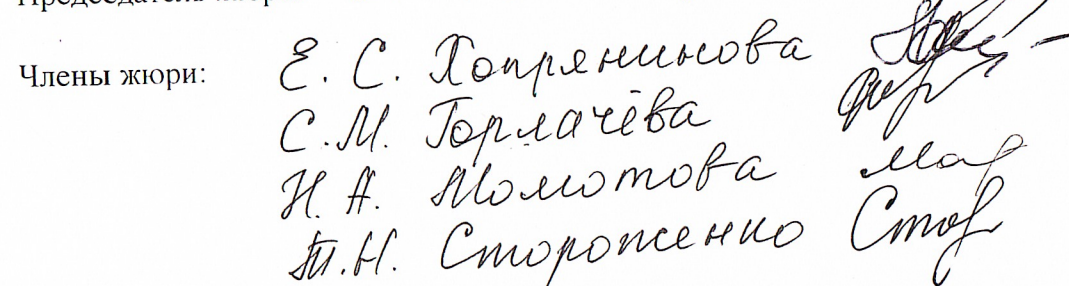 Члены жюри: Е. С. Хопрянинова
С.М. Горлачёва
Н. А. Молотова
Т.Н. Стороженко